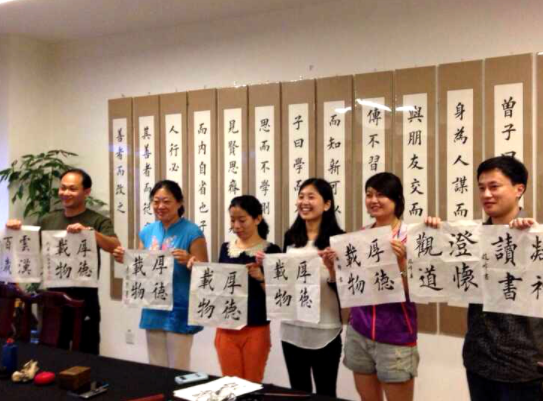 曾子
身為人謀而
與朋友交而
傳不習
而知新可
子曰學
思而不學則
見賢思
而內自省也子
人行必
其善者而從
善者而改之
雲漢
百
厚德
載物
厚德
載物
厚德
載物
厚德
載物
厚德
載物
澄懷
觀道
凝神
讀書